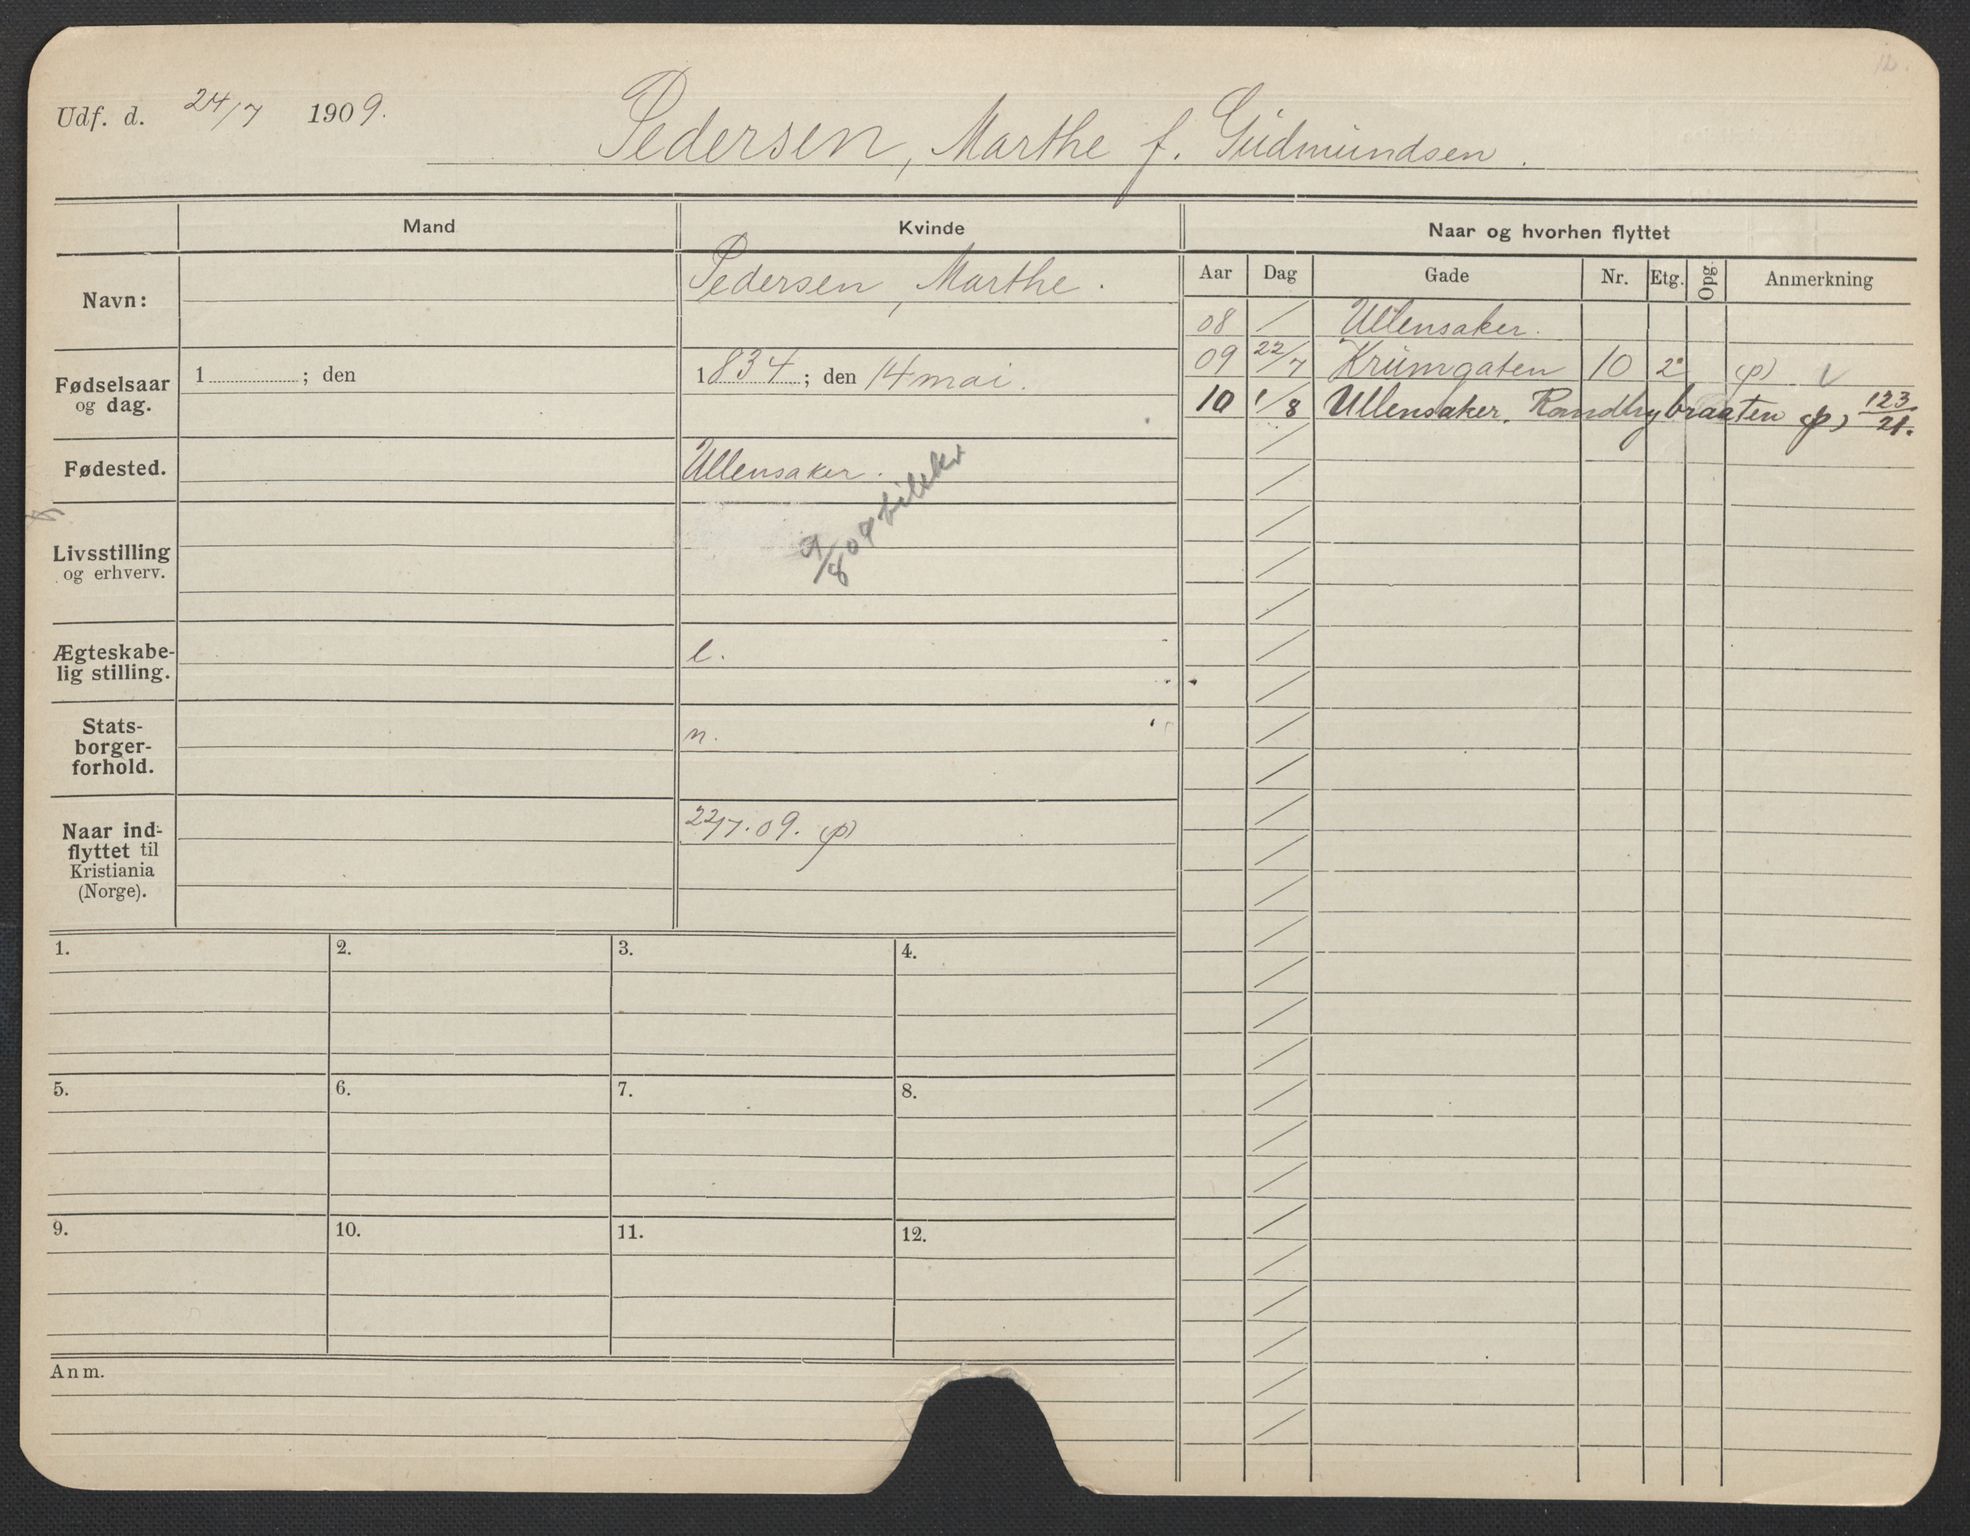 12.
Udf. d. 24/7 1909.
Pedersen, Marthe f. Gudmundsen.
Mand
Kvinde
Naar og hvorhen flyttet
Navn:
Pedersen, Marthe.
Aar Dag Gade Nr. Etg. Opg. Anmerkning
08 Ullensaker.
09 22/7 Krumgaten 10 2 (p) v
10 1/8 Ullensaker, Randbybraaten (p) 123/21.
Fødselsaar
og dag.
1 ; den
1834; den 14 mai.
Fødested.
Ullensaker.
Livsstilling
og erhverv.
9/8 09
Ægteskabe-
lig stilling.
e.
Stats-
borger-
forhold.
n.
Naar ind-
flyttet til
Kristiania
(Norge).
22/7. 09. (p)
1. 2. 3. 4.
5. 6. 7. 8.
9. 10. 11. 12.
Anm.